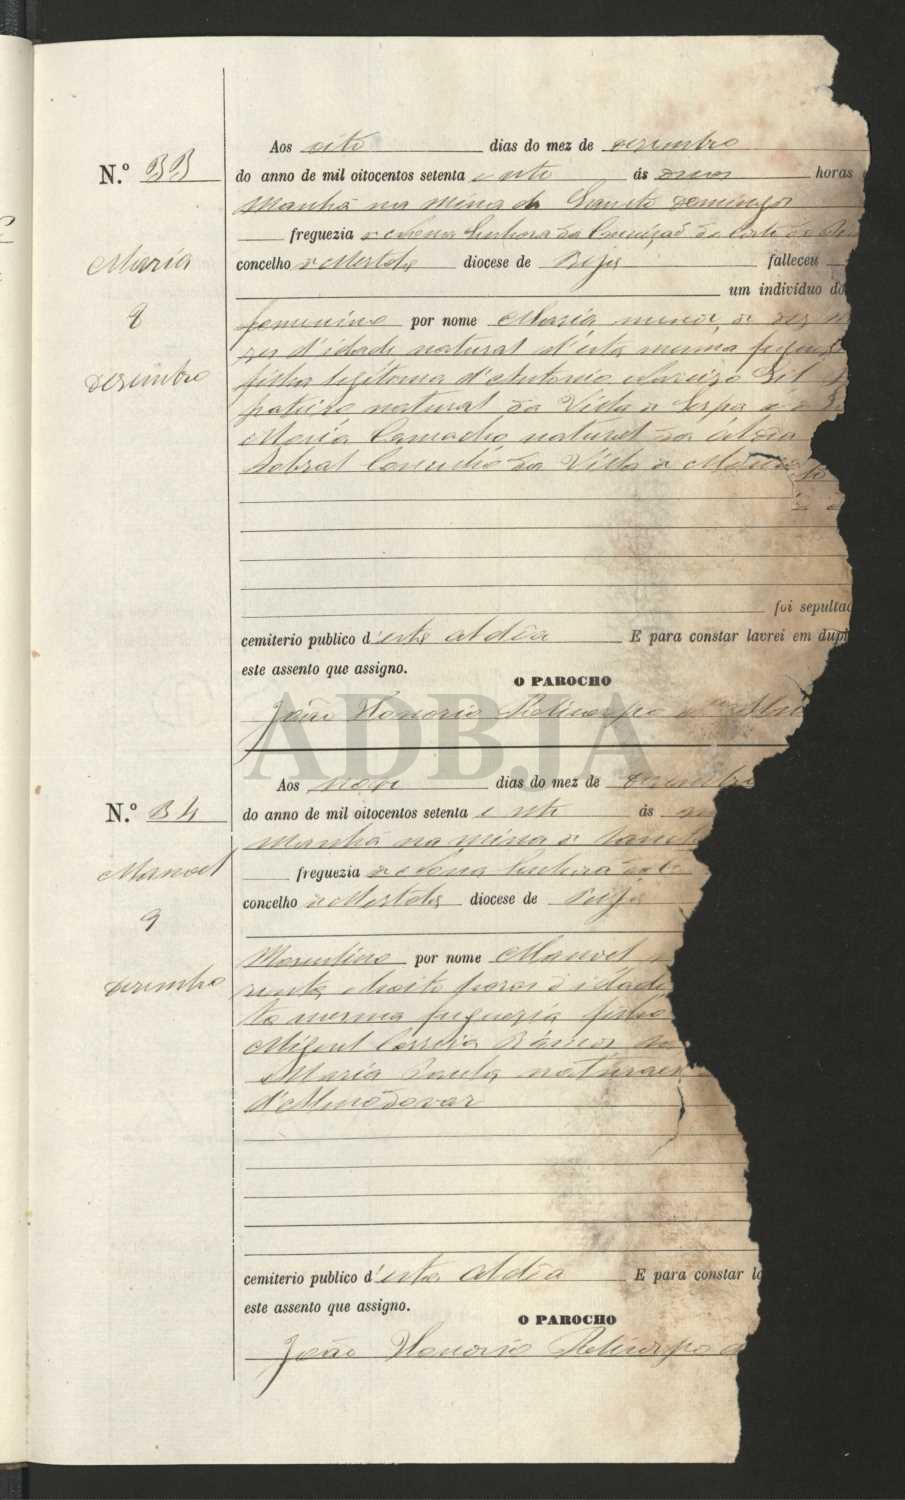 N.º 33
Maria
8
Dezembro
Aos oito dias do mez de Dezembro
do anno de mil oitocentos setenta e sete ás horas
Manhã na Mina de Sancto Domingos
freguezia de Nossa Senhora da Conceição da Corte do
concelho de Mertola diocese de Beja falleceu
um individuo do
femenino por nome Maria menor de dez me
zes d'idade natural d'esta mesma freguez
filha legitima d'Antonio Gil
pateiro natural da Villa de Serpa e de
Maria Camacho natural da Aldêa
Sobral Concelho da Villa de Moura
foi sepultad
cemiterio publico d'esta aldêa E para constar lavrei em dupl
este assento que assigno.
O PAROCHO
João Honorio
ADBJA
N.º 34
Manoel
9
Dezembro
Aos nove dias do mez de Dezembro
do anno de mil oitocentos setenta e sete ás
Manhã na mina de Sancto
freguezia de Nossa Senhora da
concelho de Mertola diocese de Beja
Masculino por nome Manoel
renta e oito horas d'idade
ta mesma freguezia filho
Miguel Correia
Maria Paula naturaes
d'Almodovar
cemiterio publico d'esta aldêa E para constar la
este assento que assigno.
O PAROCHO
João Honorio